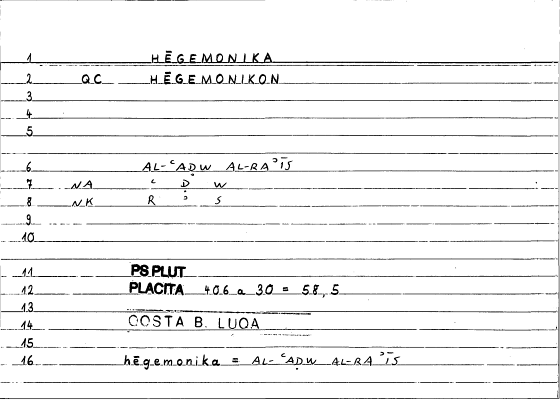 1 HĒGEMONIKA
2 QC HĒGEMONIKON
3
4
5
6 AL-ʿAḌW AL-RAʾĪS
7 NA ʿ Ḍ W
8 NK R ʾ S
9
10
11 PS PLUT
12 PLACITA 406 a 30 = 58,5
13
14 COSTA B. LUQA
15
16 hēgemonika = AL-ʿAḌW AL-RAʾĪS